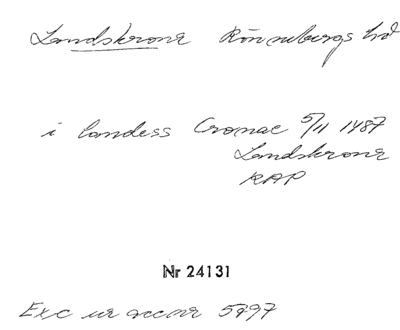 Landskrona Rönnebergs hd
i landess Cronae 5/11 1487
Landskrona
RAP
Nr 24131
Exc ur accnr 5897